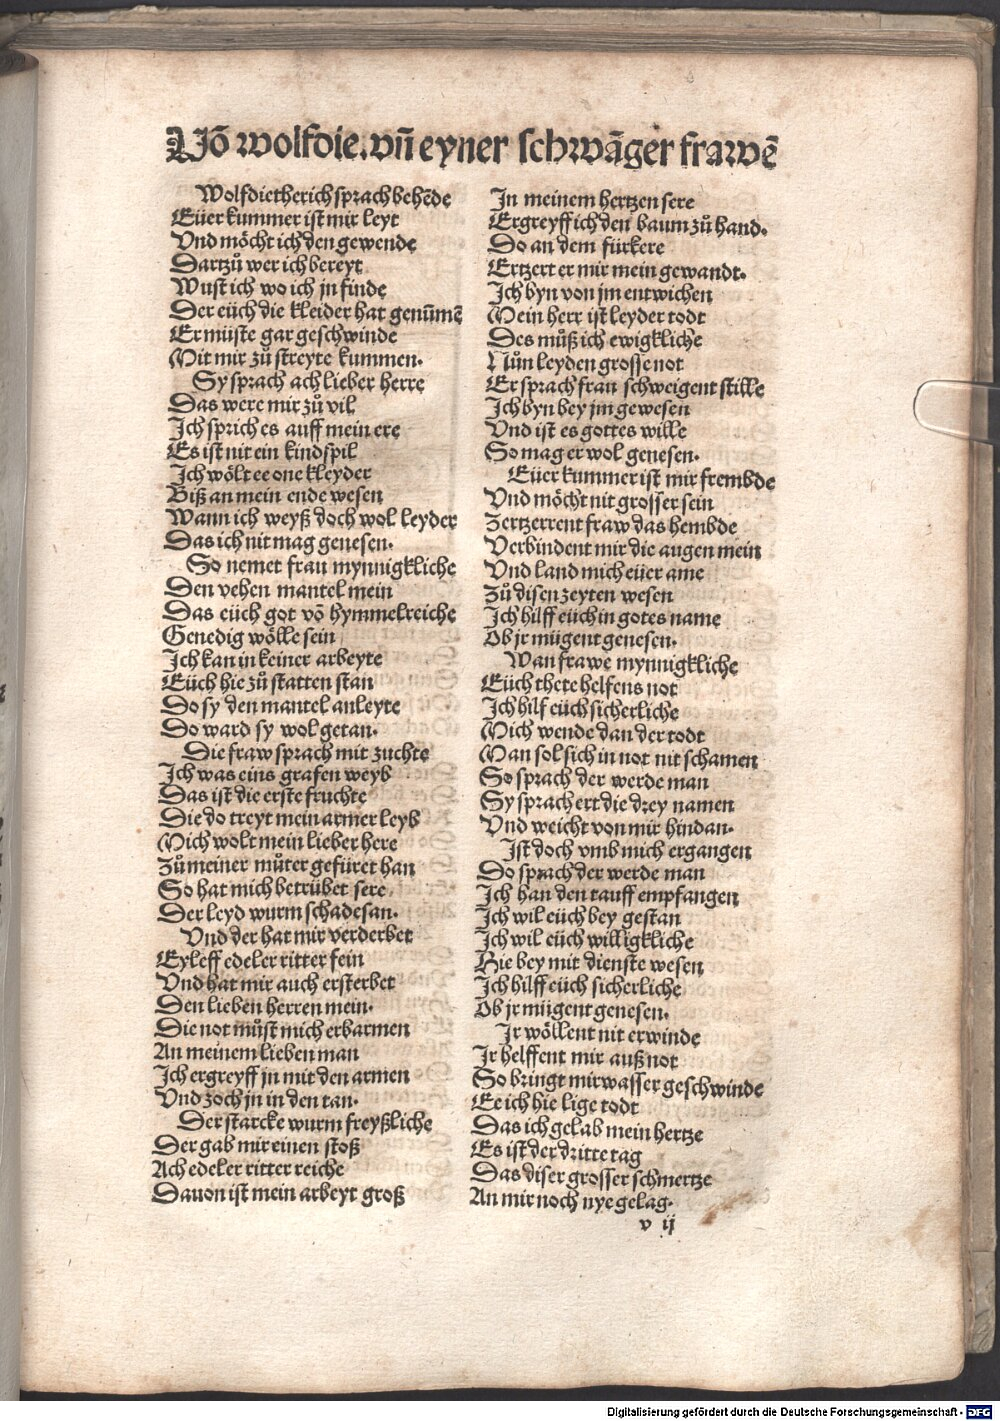 Vō wolfdie. vn̄ eyner schwāger frawē
Wolfdietherich sprach behēde
Eüer kummer ist mir leyt
Vnd möcht ich den gewende
Dartzů wer ich bereyt
Wust ich wo ich jn finde
Der eüch die kleider hat genūmē
Er müste gar geschwinde
Mit mir zů streyte kummen.
Sy sprach ach lieber herre
Das were mir zů vil
Ich sprich es auff mein ere
Es ist nit ein kindspil
Ich wölt ee one kleyder
Biß an mein ende wesen
Wann ich weyß doch wol leyder
Das ich nit mag genesen.
So nemet frau mynnigkliche
Den vehen mantel mein
Das eüch got vō hymmelreiche
Genedig wölle sein
Ich kan in keiner arbeyte
Eüch hie zů statten stan
Do sy den mantel anleyte
Do ward sy wol getan.
Die fraw sprach mit zuchte
Ich was eins grafen weyb
Das ist die erste fruchte
Die do treyt mein armer leyb
Mich wolt mein lieber here
Zů meiner můter gefüret han
So hat mich betrübet sere
Der leyd wurm schadesan.
Vnd der hat mir verderbet
Eyleff edeler ritter fein
Vnd hat mir auch ersterbet
Den lieben herren mein.
Die not můst mich erbarmen
An meinem lieben man
Ich ergreyff jn mit den armen
Vnd zoch jn in den tan.
Der starcke wurm freyßliche
Der gab mir einen stoß
Ach edeler ritter reiche
Dauon ist mein arbeyt groß
In meinem hertzen sere
Ergreyff ich den baum zů hand.
Do an dem fürkere
Ertzert er mir mein gewandt.
Ich byn von jm entwichen
Mein herr ist leyder todt
Des můß ich ewigkliche
Nůn leyden grosse not
Er sprach frau schweigent stille
Ich byn bey jm gewesen
Vnd ist es gottes wille
So mag er wol genesen.
Eüer kummer ist mir frembde
Vnd möcht nit grosser sein
Zertzerrent fraw das hembde
Verbindent mir die augen mein
Vnd land mich eüer ame
Zů disen zeyten wesen
Ich hilff eüch in gotes name
Ob jr mügent genesen.
Wan frawe mynnigkliche
Eüch thete helfens not
Ich hilf eüch sicherliche
Mich wende dan der todt
Man sol sich in not nit schamen
So sprach der werde man
Sy sprach ert die drey namen
Vnd weicht von mir hindan.
Ist doch vmb mich ergangen
Do sprach der werde man
Ich han den tauff empfangen
Ich wil eüch bey gestan
Ich wil eüch willigkliche
Hie bey mit dienste wesen
Ich hilff eüch sicherliche
Ob jr mügent genesen.
Ir wöllent nit erwinde
Ir helffent mir auß not
So bringt mir wasser geschwinde
Ee ich hie lige todt
Das ich gelab mein hertze
Es ist der dritte tag
Das diser grosser schmertze
An mir noch nye gelag.
v ij
Digitalisierung gefördert durch die Deutsche Forschungsgemeinschaft - DFG